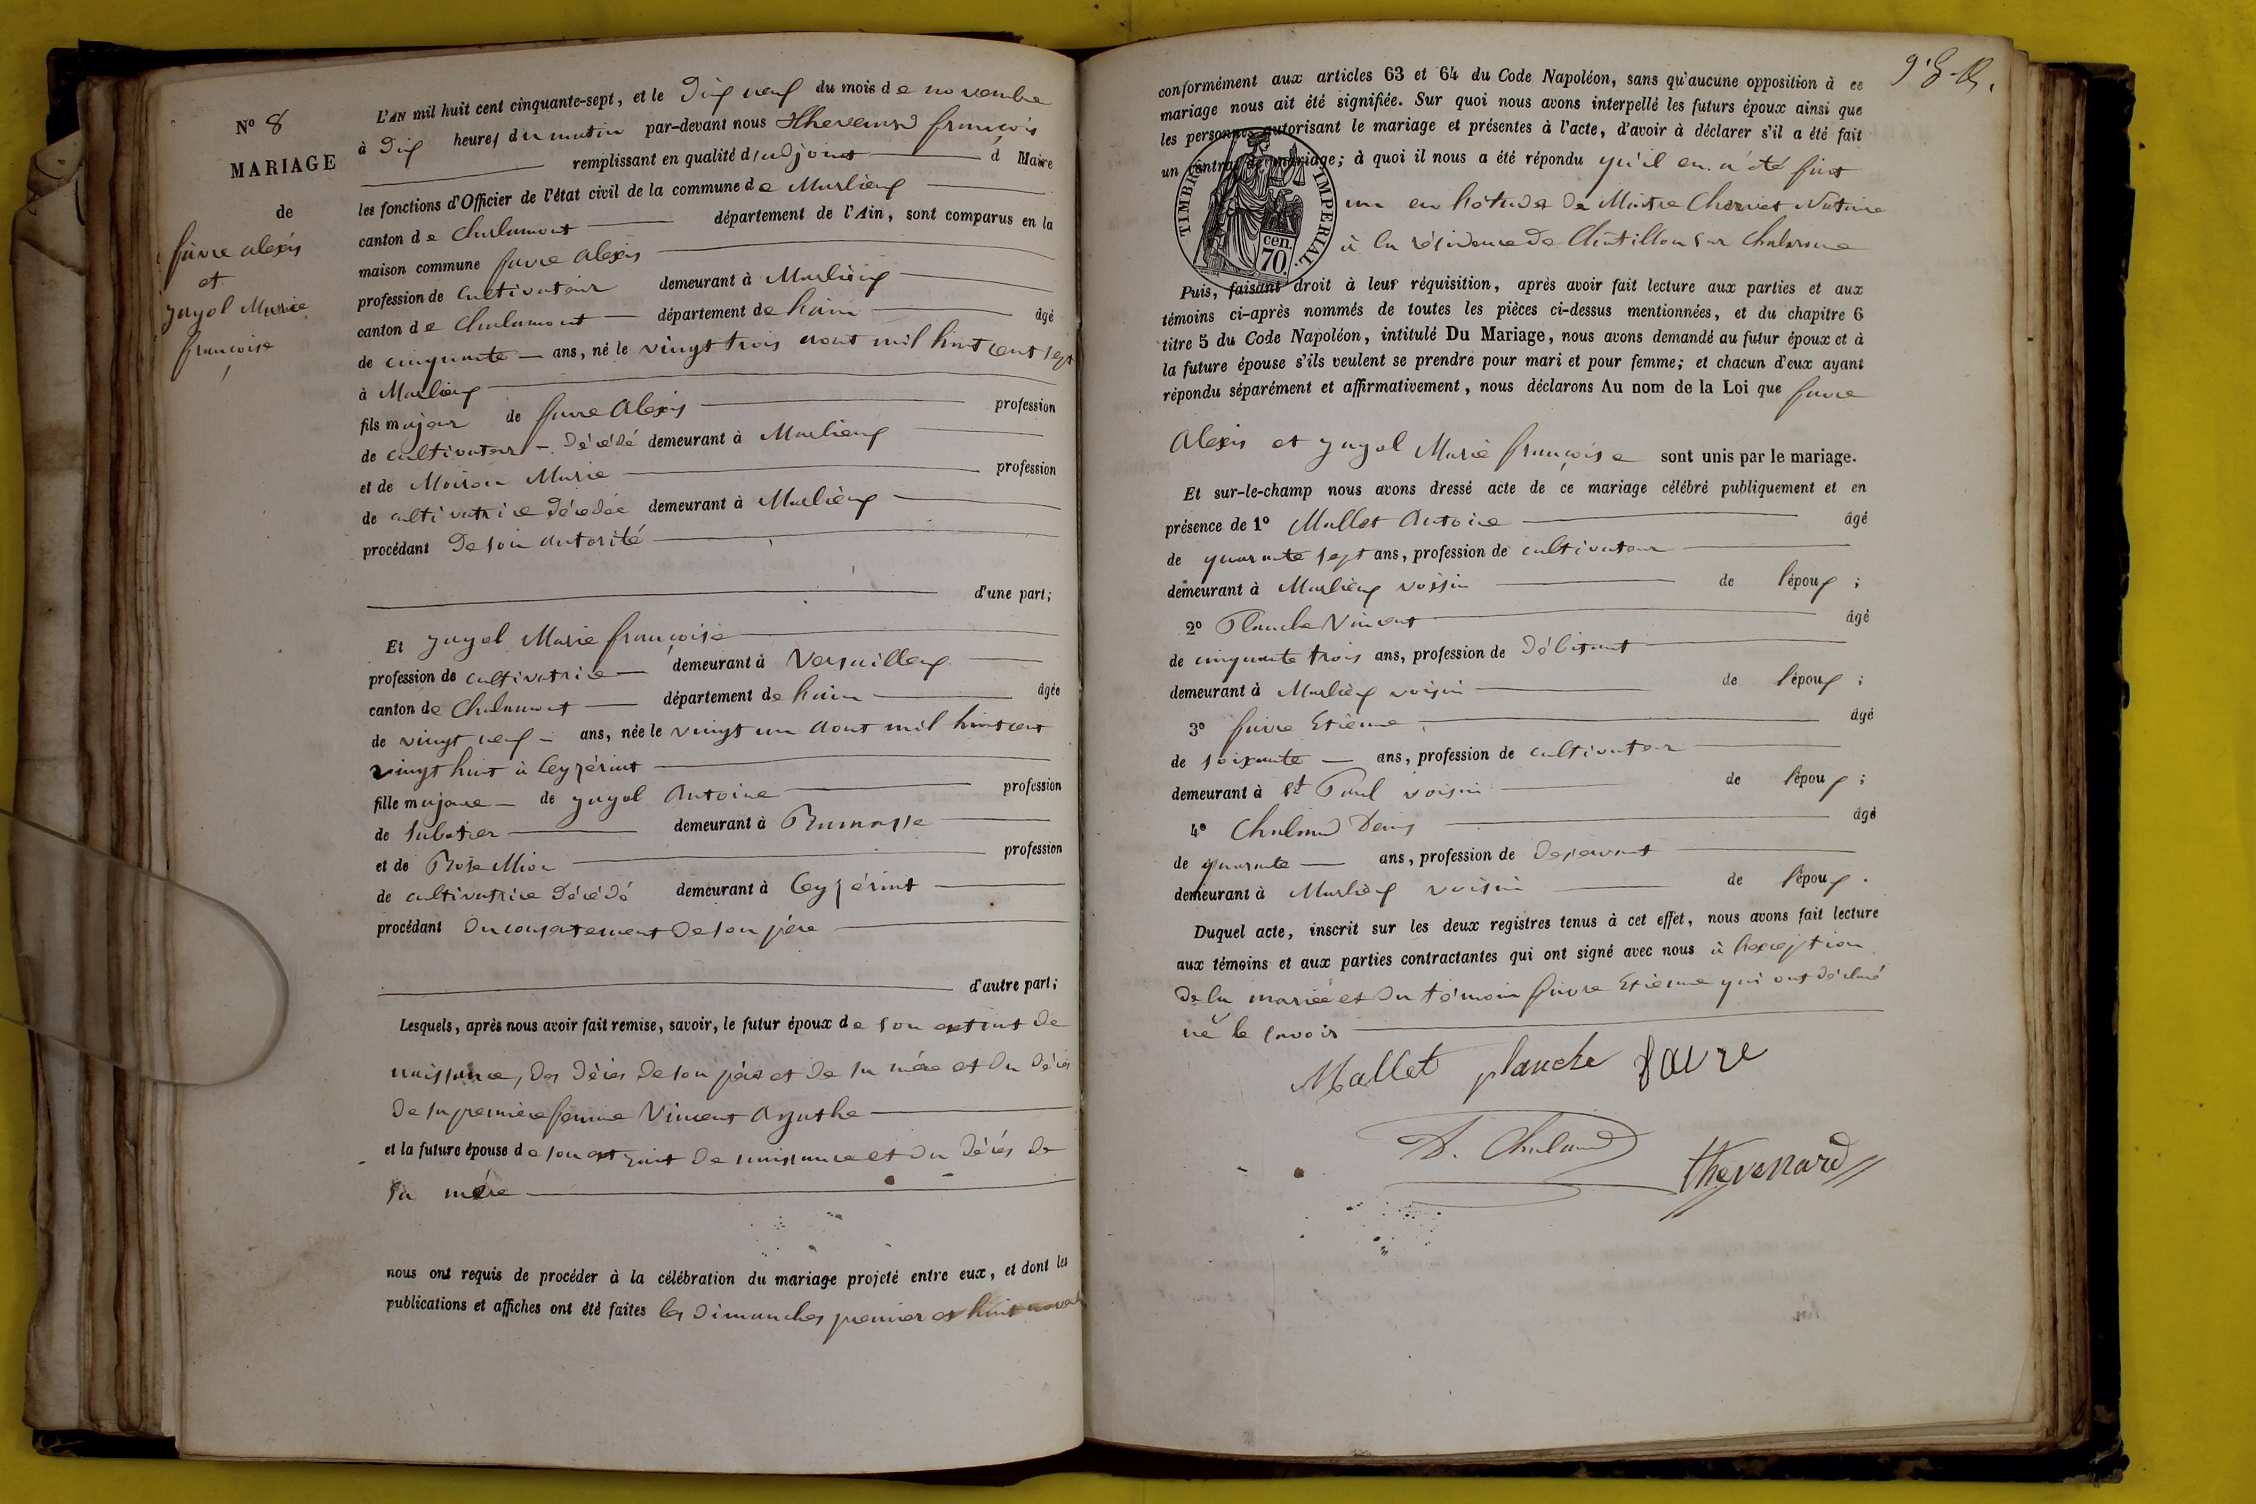 N° 8
MARIAGE
de
favre alexis
et
jayol Marie
françoise
L'AN mil huit cent cinquante-sept, et le Dix neuf du mois de novembre
à Dix heures du matin par-devant nous thevenard françois
remplissant en qualité d'adjoint d Maire
les fonctions d'Officier de l'état civil de la commune de Marlieux
canton de Chalamont département de l'Ain, sont comparus en la
maison commune favre alexis
profession de cultivateur demeurant à Marlieux
canton de Chalamont département de l'ain âgé
de cinquante ans, né le vingt trois aout mil huit cent sept
à Marlieux
fils majeur de favre alexis profession
de cultivateur - Décédé demeurant à Marlieux
et de Moiron Marie profession
de cultivatrice Décédée demeurant à Marlieux
procédant De son autorité
d'une part;
Et jayol Marie françoise
profession de cultivatrice demeurant à Versailleux
canton de Chalamont département de l'ain âgée
de vingt neuf ans, née le vingt un aout mil huit cent
vingt huit à Ceyzériat
fille majeure de jayol Antoine profession
de sabotier demeurant à Ramasse
et de Rose Mion profession
de cultivatrice Décédé demeurant à Ceyzériat
procédant Du consentement De son père
d'autre part;
Lesquels, après nous avoir fait remise, savoir, le futur époux de son extrait de
naissance, des Décès de son père et de sa mère et du Décès
De sa première femme Vincent Agathe
et la future épouse de son extrait de naissance et du Décès De
sa mère
nous ont requis de procéder à la célébration du mariage projeté entre eux, et dont les
publications et affiches ont été faites les Dimanches premier et huit
conformément aux articles 63 et 64 du Code Napoléon, sans qu'aucune opposition à ce
mariage nous ait été signifiée. Sur quoi nous avons interpellé les futurs époux ainsi que
les personnes autorisant le mariage et présentes à l'acte, d'avoir à déclarer s'il a été fait
un contrat de mariage; à quoi il nous a été répondu qu'il en a été fait
un en l'étude de Maitre Notaire
à la résidence de Chatillon sur Chalaronne
TIMBRE IMPERIAL
70 cen.
Puis, faisant droit à leur réquisition, après avoir fait lecture aux parties et aux
témoins ci-après nommés de toutes les pièces ci-dessus mentionnées, et du chapitre 6
titre 5 du Code Napoléon, intitulé Du Mariage, nous avons demandé au futur époux et à
la future épouse s'ils veulent se prendre pour mari et pour femme; et chacun d'eux ayant
répondu séparément et affirmativement, nous déclarons Au nom de la Loi que favre
Alexis et jayol Marie françoise sont unis par le mariage.
Et sur-le-champ nous avons dressé acte de ce mariage célébré publiquement et en
présence de 1° Mallet Antoine âgé
de quarante sept ans, profession de cultivateur
demeurant à Marlieux voisin de l'époux;
2° Planche Vincent âgé
de cinquante trois ans, profession de Débitant
demeurant à Marlieux voisin de l'époux;
3° favre Etienne âgé
de soixante ans, profession de cultivateur
demeurant à St Paul voisin de l'époux;
4° Chaland Denis âgé
de quarante ans, profession de
demeurant à Marlieux voisin de l'époux.
Duquel acte, inscrit sur les deux registres tenus à cet effet, nous avons fait lecture
aux témoins et aux parties contractantes qui ont signé avec nous à l'exception
De la mariée et du témoin favre Etienne qui ont déclaré
ne le savoir
Mallet planche favre
D. Chaland thevenard